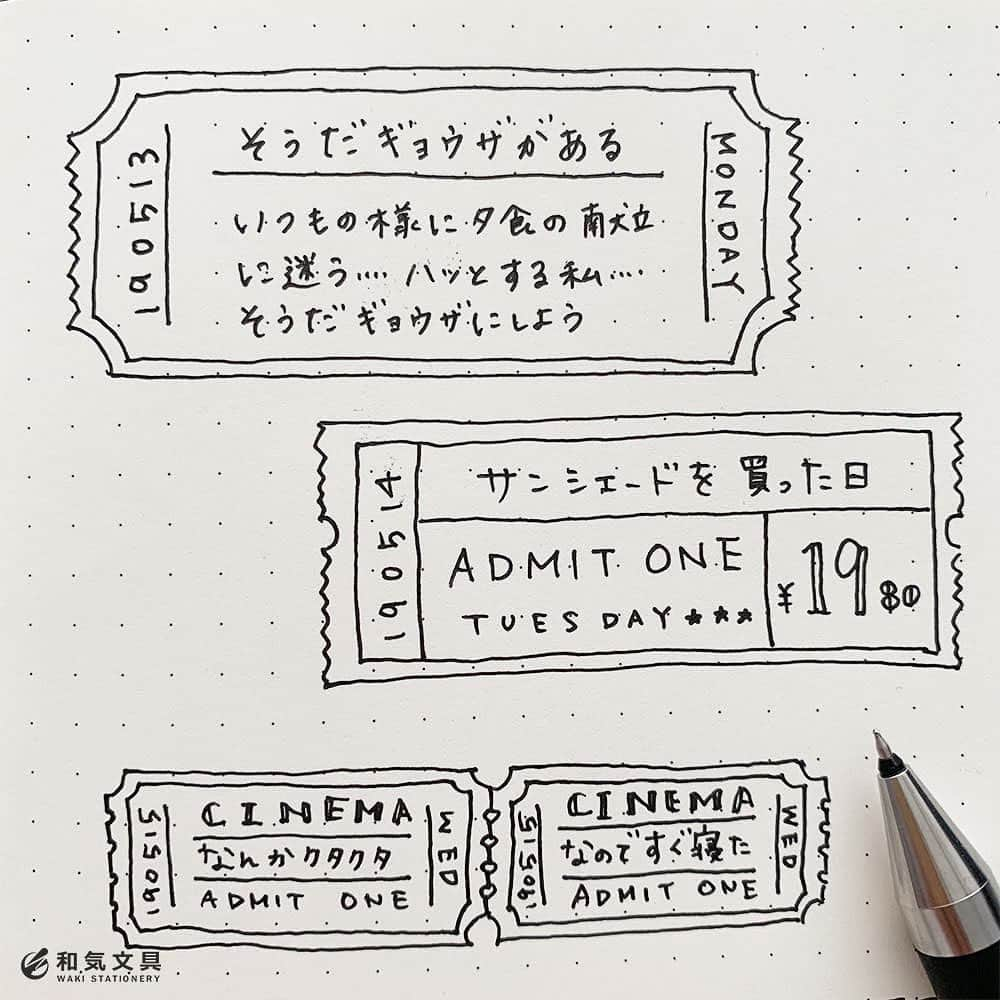 190513
そうだギョウザがある
いつもの様に夕食の献立
に迷う‥‥ハッとする私‥‥
そうだギョウザにしよう
MONDAY
190514
サンシェードを買った日
ADMIT ONE
TUESDAY★★★
¥1980
190515
CINEMA
なんかクタクタ
ADMIT ONE
WED
190515
CINEMA
なのですぐ寝た
ADMIT ONE
WED
和気文具
WAKI STATIONERY